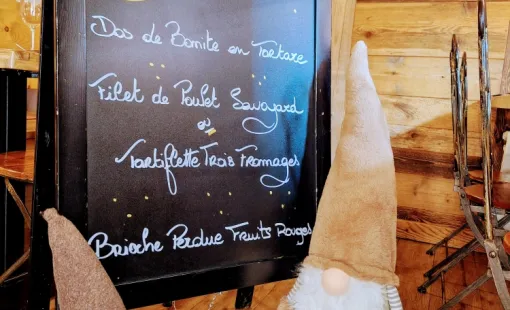 Dos de Bonite en Tartare
Filet de Poulet Savoyard
ou
Tartiflette Trois Fromages
Brioche Perdue Fruits Rouges